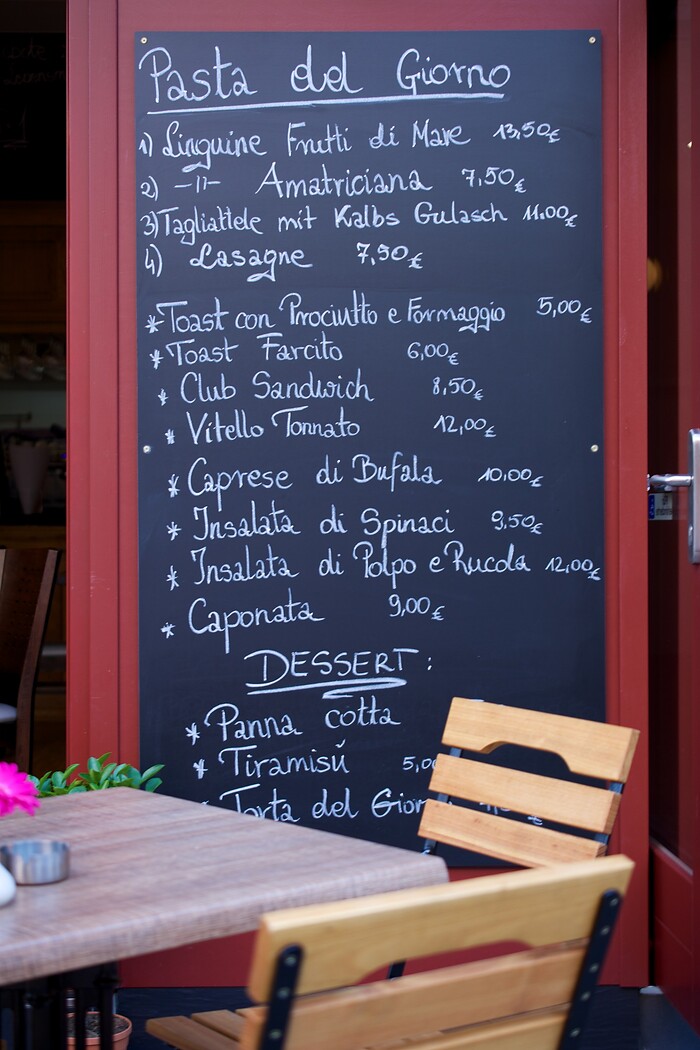 Pasta del Giorno
1) Linguine Frutti di Mare 13,50€
2) -11- Amatriciana 7,50€
3) Tagliattele mit Kalbs Gulasch 11.00€
4) Lasagne 7,50€
*Toast con Prociutto e Formaggio 5,00€
*Toast Farcito 6,00€
* Club Sandwich 8,50€
* Vitello Tonnato 12,00€
* Caprese di Bufala 10,00€
* Insalata di Spinaci 9,50€
* Insalata di Polpo e Rucola 12,00€
* Caponata 9,00€
DESSERT:
* Panna cotta
* Tiramisú
Torta del